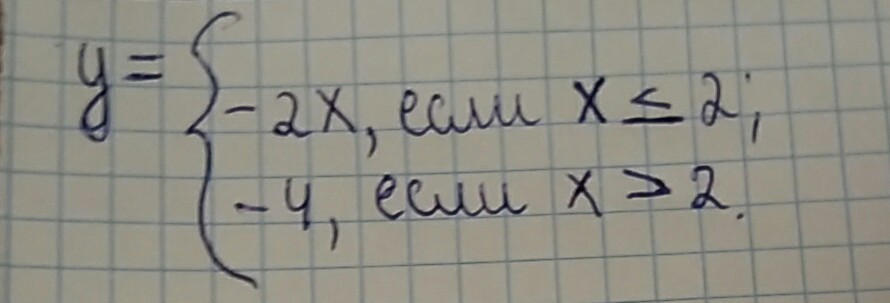 y = {
-2x, если x ≤ 2;
-4, если x > 2.